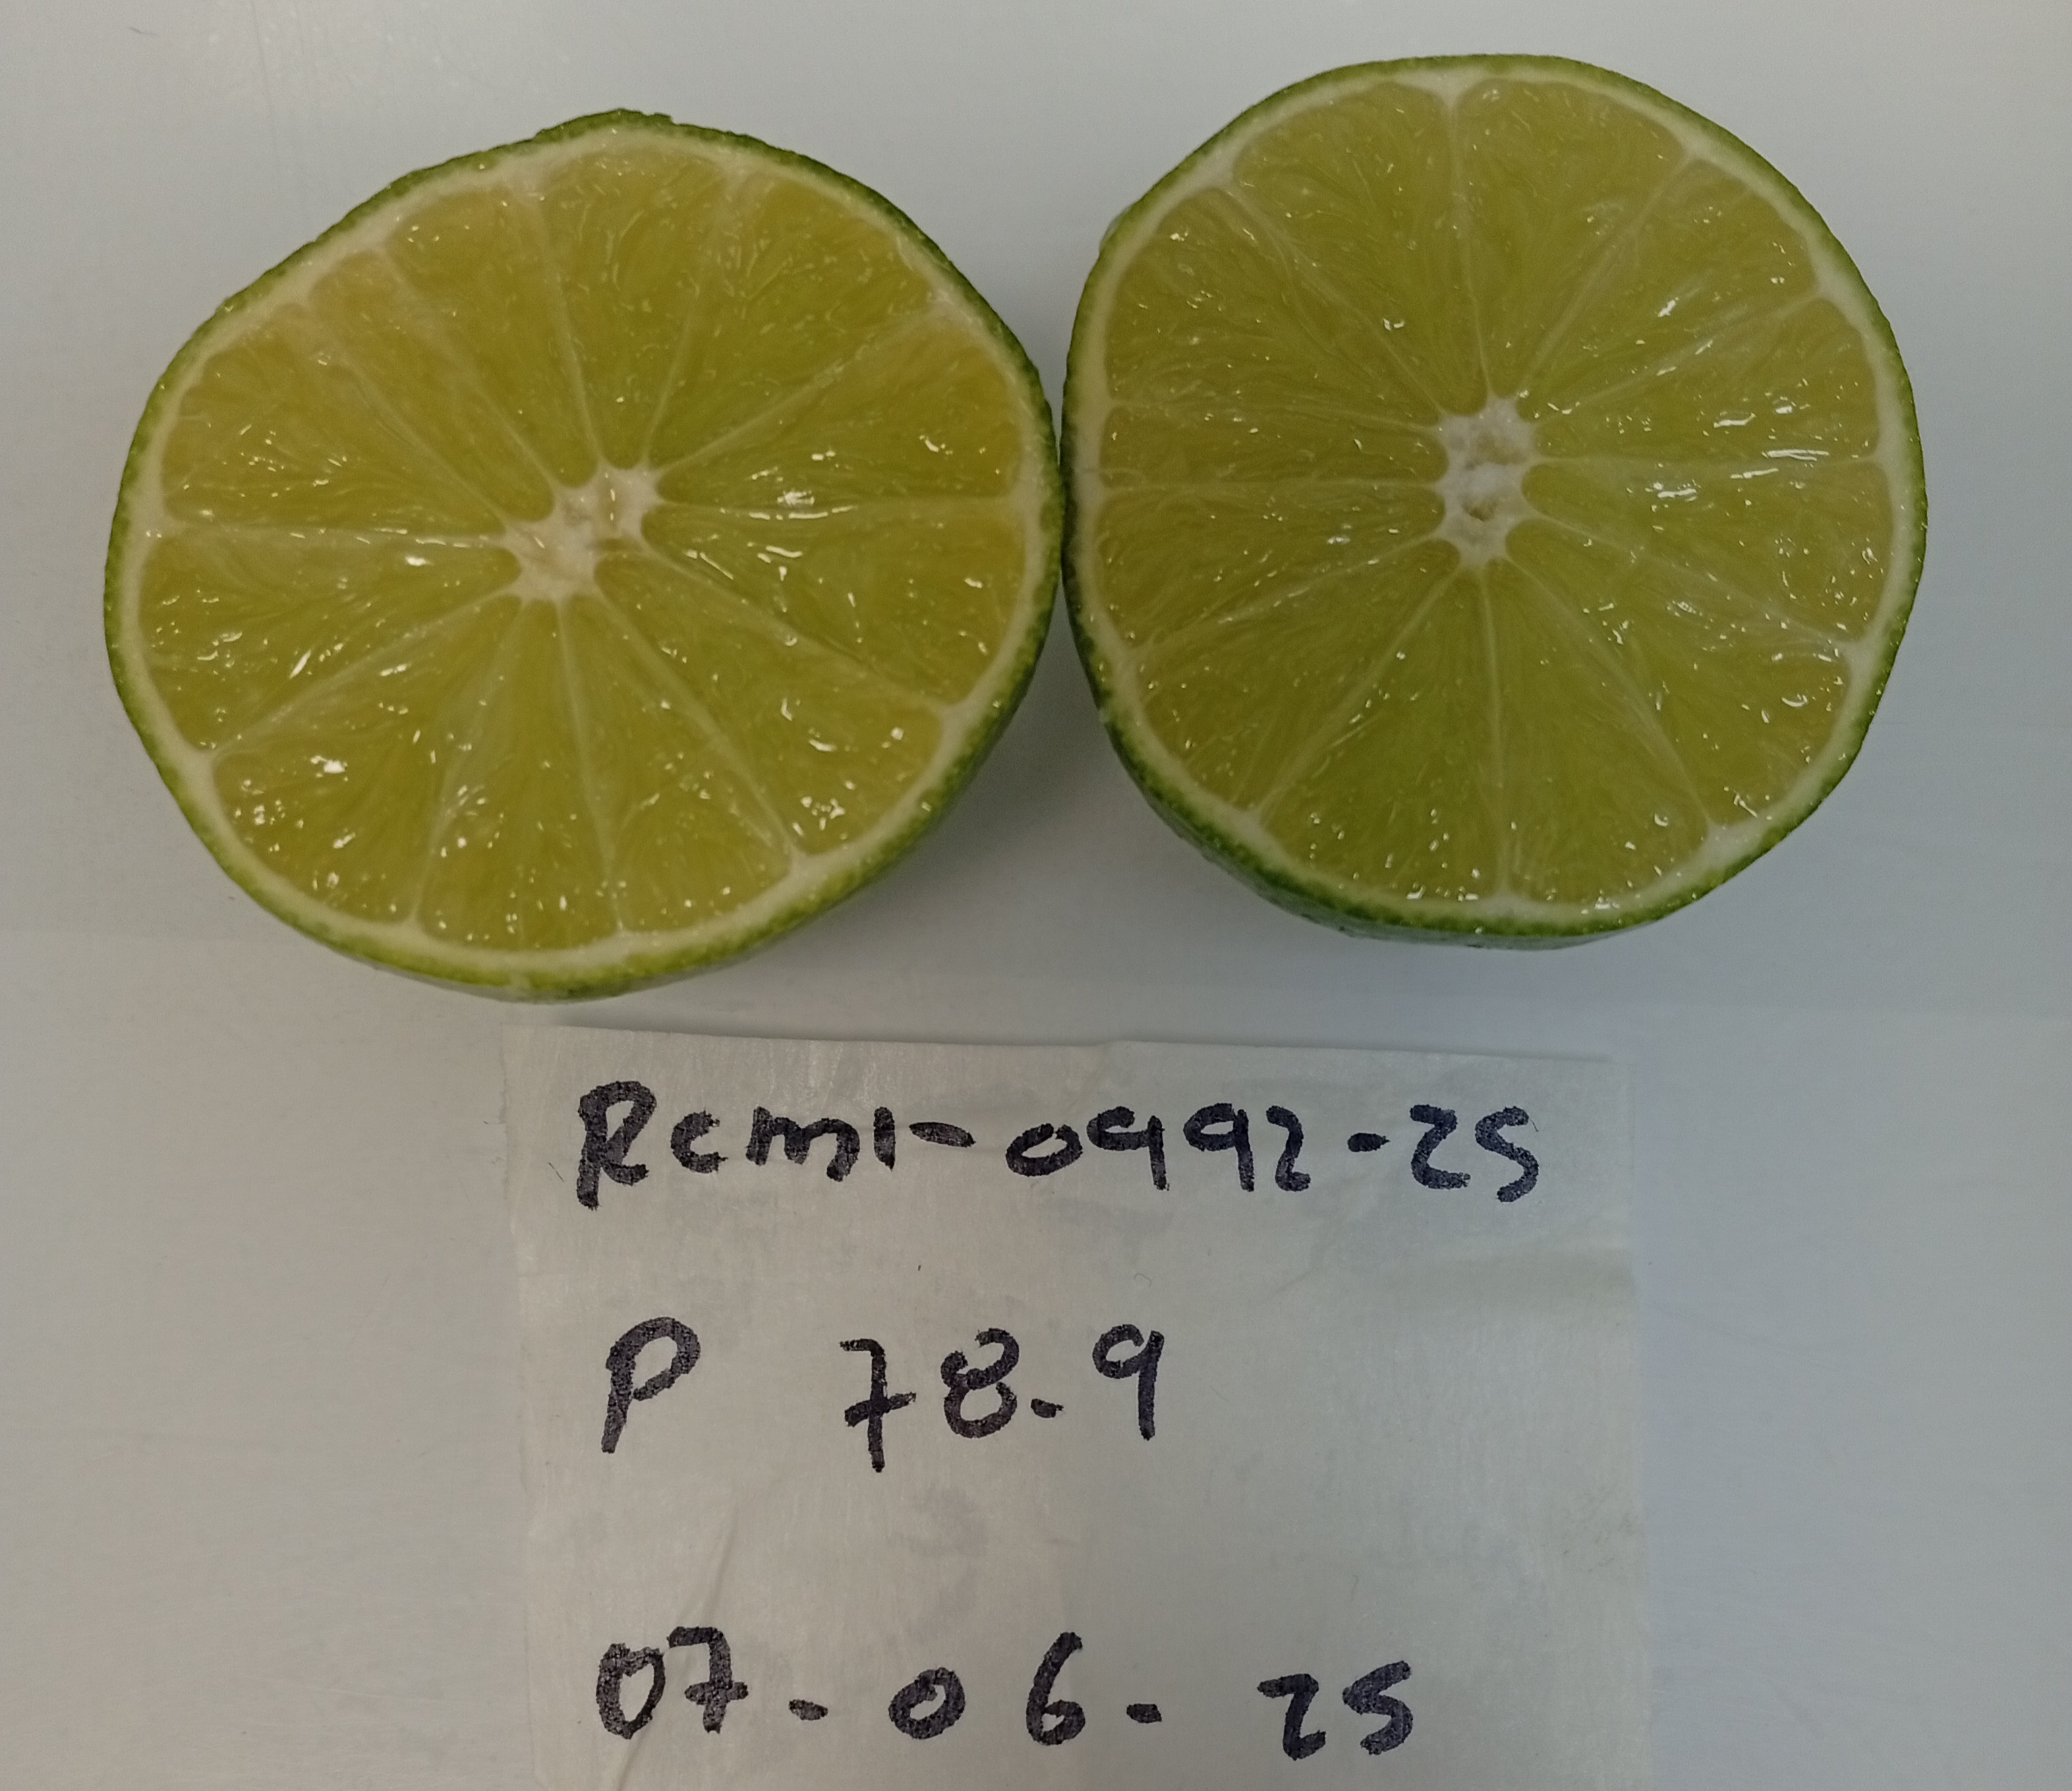 RCM1-0992-25
P 78.9
07-06-25